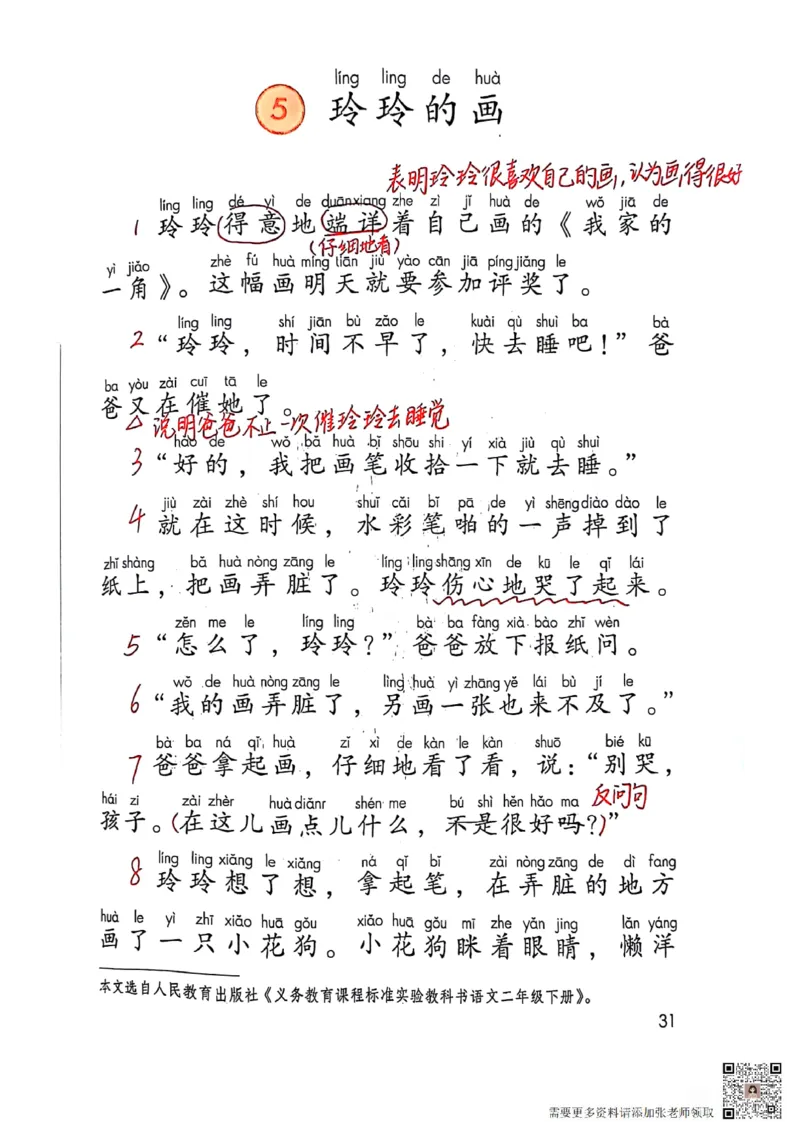 líng ling de huà
5 玲玲的画
表明玲玲很喜欢自己的画,认为画得很好
líng ling dé yì de duānxiang zhe zì jǐ huà de wǒ jiā de
1 玲玲得意地端详着自己画的《我家的
(仔细地看)
yì jiǎo zhè fú huà míng tiān jiù yào cān jiā píng jiǎng le
一角》。这幅画明天就要参加评奖了。
líng ling shí jiān bù zǎo le kuài qù shuì ba bà
2 “玲玲，时间不早了，快去睡吧！”爸
ba yòu zài cuī tā le
爸又在催她了。
△说明爸爸不止一次催玲玲去睡觉
hǎo de wǒ bǎ huà bǐ shōu shi yí xià jiù qù shuì
3 “好的，我把画笔收拾一下就去睡。”
jiù zài zhè shí hou shuǐ cǎi bǐ pā de yì shēng diào dào le
4 就在这时候，水彩笔啪的一声掉到了
zhǐ shàng bǎ huà nòng zāng le líng ling shāng xīn de kū le qǐ lái
纸上，把画弄脏了。玲玲伤心地哭了起来。
zěn me le líng ling bà ba fàng xià bào zhǐ wèn
5 “怎么了，玲玲？”爸爸放下报纸问。
wǒ de huà nòng zāng le lìng huà yì zhāng yě lái bù jí le
6 “我的画弄脏了，另画一张也来不及了。”
bà ba ná qǐ huà zǐ xì de kàn le kàn shuō bié kū
7 爸爸拿起画，仔细地看了看，说：“别哭，
hái zi zài zhèr huà diǎnr shén me bú shì hěn hǎo ma 反问句
孩子。(在这儿画点儿什么，不是很好吗？)”
líng ling xiǎng le xiǎng ná qǐ bǐ zài nòng zāng de dì fang
8 玲玲想了想，拿起笔，在弄脏的地方
huà le yì zhī xiǎo huā gǒu xiǎo huā gǒu mī zhe yǎn jing lǎn yáng
画了一只小花狗。小花狗眯着眼睛，懒洋
本文选自人民教育出版社《义务教育课程标准实验教科书语文二年级下册》。
31
需要更多资料请添加张老师领取